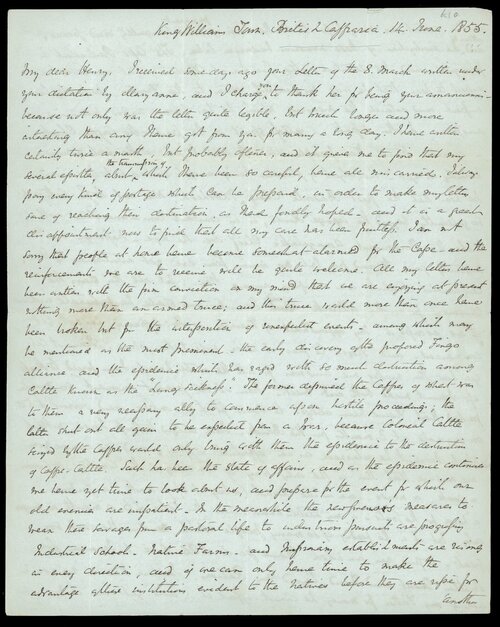 K10
King William Town. British Caffraria 14 June. 1855.
My dear Henry. I received some days ago your letter of the 8. March written under
your dictation by Mary Anne, and I charge you to thank her for being your amanuensis
because not only was the letter quite legible, but much longer and more
interesting than any I have got from you for many a long day. I have written
certainly twice a month, but probably oftener, and it grieves me to find that my
several epistles, about the transmission of which I have been so careful, have all miscarried.
from every kind of postage which can be prepaid in order to make my letters
sure of reaching their destination, as I had fondly hoped - and it is a great
disappointment now to find that all my care has been fruitless. I am not
sorry that people at home have become somewhat alarmed for the Cape - and the
reinforcements we are to receive will be quite welcome. All my letters have
been written with the firm conviction on my mind that we are enjoying at present
nothing more than an armed truce; and this truce would more than once have
been broken but for the interposition of unexpected events - among which may
be mentioned as the most prominent - the early discovery of the proposed Fingo
alliance and the epidemic which has raged with so much destruction among
Cattle known as the "Lung Sickness". The former deprived the Caffres of what was
to them a very necessary ally to commence upon hostile proceedings; the
latter shut out all gain to be expected from a War, because Colonial Cattle
seized by the Caffres would only bring with them the epidemic to the destruction
of Caffre Cattle. Such has been the state of affairs, and as the epidemic continues
we have yet time to look about us, and prepare for the event for which our
old enemies are impatient. In the meanwhile the new measures to
wean these savages from a pastoral life to industrious pursuits are progressing
Industrial Schools - Native Farms - and Missionary establishments are rising
in every direction, and if we can only have time to make the
advantage of these institutions evident to the Natives before they are ripe for
another